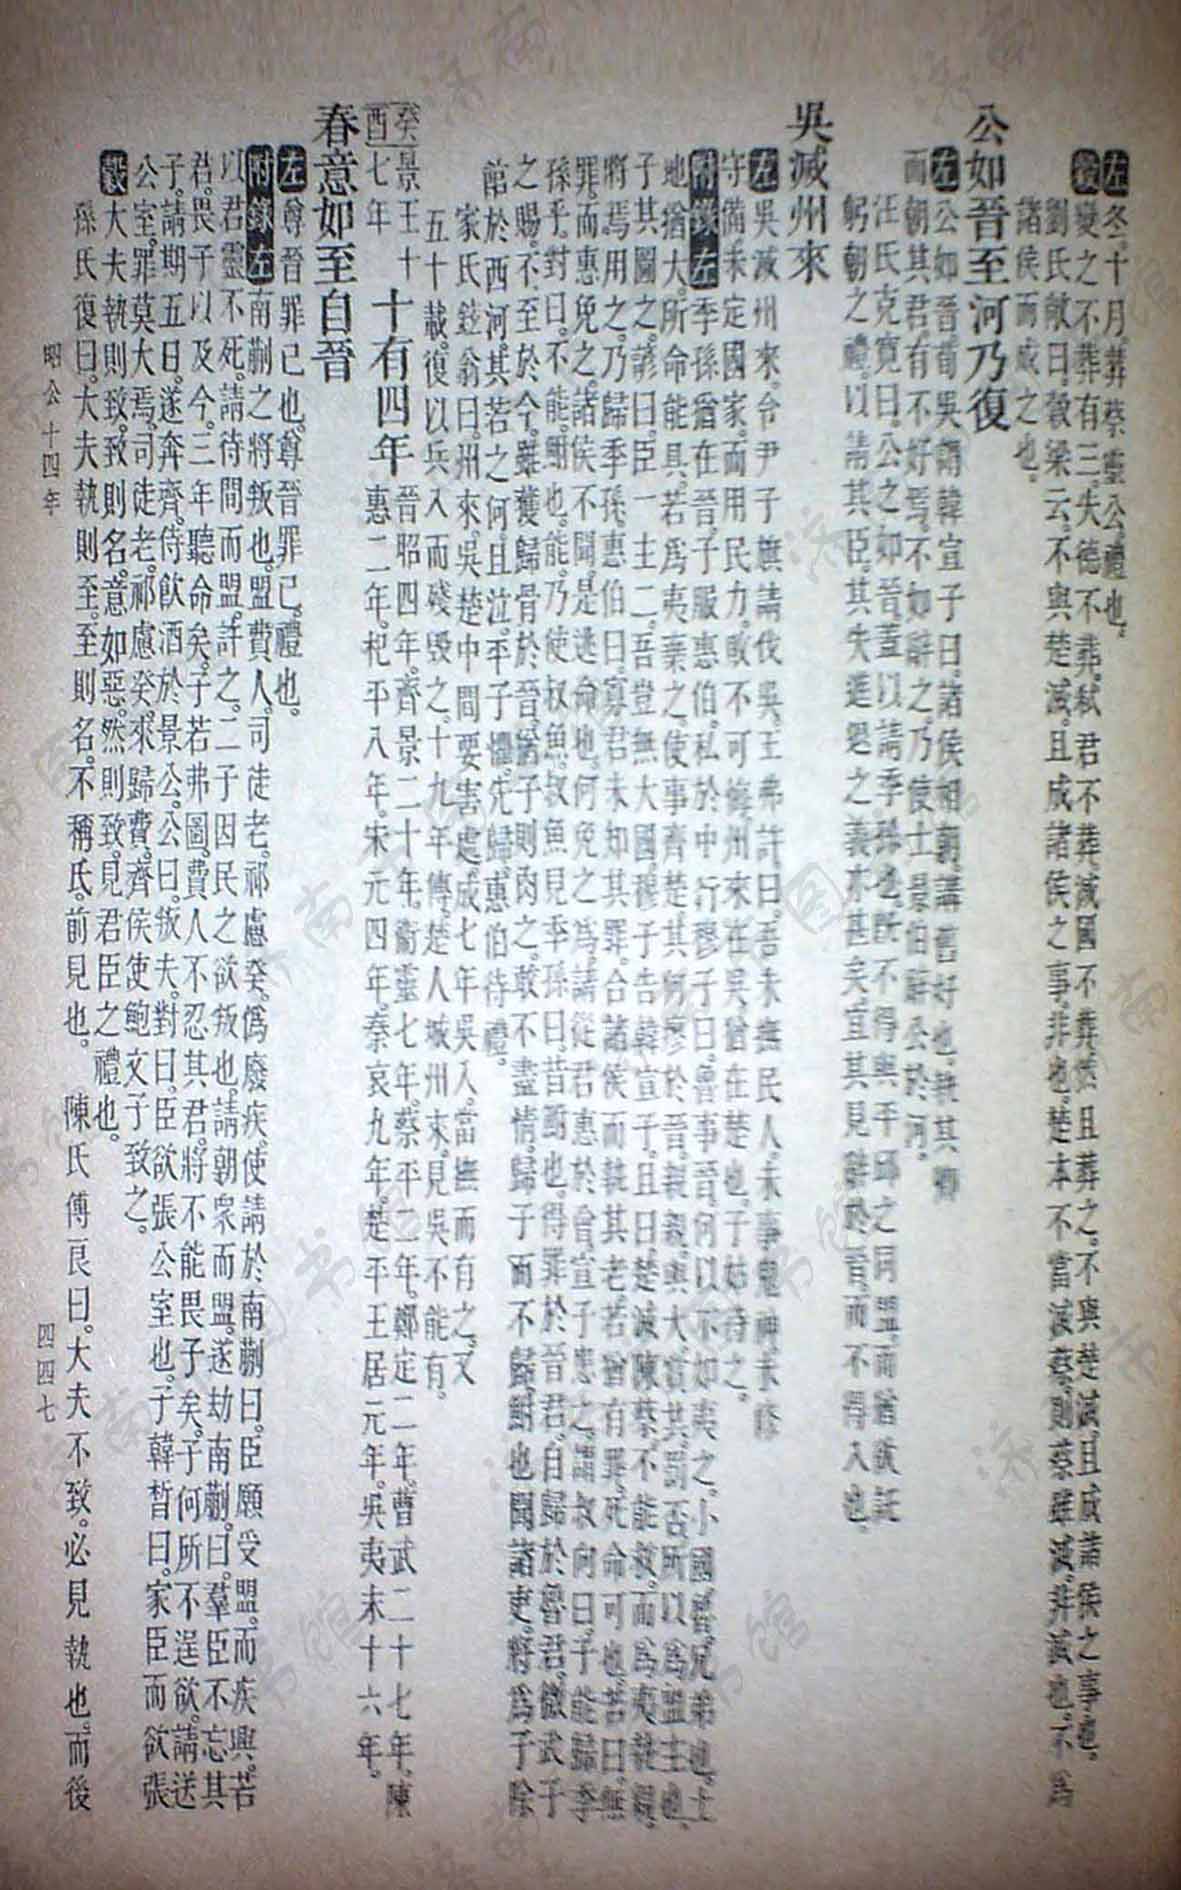 左冬。十月。葬蔡靈公。禮也。
穀變之不葬有三。失德不葬。弑君不葬。滅國不葬。然且葬之。不與楚滅。且成諸侯之事也。
劉氏敞曰。穀梁云。不與楚滅。且成諸侯之事。非也。楚本不當滅蔡。則蔡雖滅。非滅也。不爲
諸侯而成之也。
公如晉至河乃復
左公如晉。荀吳謂韓宣子曰。諸侯相朝。講舊好也。執其卿
而朝其君。有不好焉。不如辭之。乃使士景伯辭公於河。
汪氏克寬曰。公之如晉。蓋以請季孫也。既不得與平邱之同盟。而猶欲託
躬朝之禮。以請其臣。其失進退之義亦甚矣。宜其見辭於晉。而不得入也。
吳滅州來
左吳滅州來。令尹子旗請伐吳。王弗許。曰。吾未撫民人。未事鬼神。未修
守備。未定國家。而用民力。敗不可悔。州來在吳。猶在楚也。子姑待之。
附錄左季孫猶在晉。子服惠伯。私於中行穆子曰。魯事晉。何以不如夷之小國。魯。兄弟也。土
地猶大。所命能具。若爲夷棄之。使事齊楚。其何瘳於晉。親親。與大。賞共。罰否。所以爲盟主也。
子其圖之。諺曰。臣一主二。吾豈無大國。穆子告韓宣子。且曰。楚滅陳蔡。不能救。而爲夷執親。
將焉用之。乃歸季孫。惠伯曰。寡君未知其罪。合諸侯而執其老。若猶有罪。死命可也。若曰。無
罪。而惠免之。諸侯不聞。是逃命也。何免之爲。請從君惠於會。宣子患之。謂叔向曰。子能歸季
孫乎。對曰。不能。鮒也能。乃使叔魚。叔魚見季孫曰。昔鮒也。得罪於晉君。自歸於魯君。微武子
之賜。不至於今。雖獲歸骨於晉。猶子則肉之。敢不盡情。歸子而不歸。鮒也聞諸吏。將爲子除
館於西河。其若之何。且泣。平子懼。先歸。惠伯待禮。
家氏鉉翁曰。州來。吳楚中間要害處。成七年吳入。當撫而有之。又
五十載。復以兵入而殘毀之。十九年傳。楚人城州來。見吳不能有。
癸酉景王十七年
十有四年晉昭四年。齊景二十年。衞靈七年。蔡平二年。鄭定二年。曹武二十七年。陳
惠二年。杞平八年。宋元四年。秦哀九年。楚平王居元年。吳夷末十六年。
春意如至自晉
左尊晉罪已也。尊晉罪已。禮也。
附錄左南蒯之將叛也。盟費人。司徒老。祁慮癸。僞廢疾。使請於南蒯曰。臣願受盟。而疾興。若
以君靈不死。請待間而盟。許之。二子因民之欲叛也。請朝衆而盟。遂劫南蒯。曰。羣臣不忘其
君。畏子以及今。三年聽命矣。子若弗圖。費人不忍其君。將不能畏子矣。子何所不逞欲。請送
子。請期五日。遂奔齊。侍飲酒於景公。公曰。叛夫。對曰。臣欲張公室也。子韓晳曰。家臣而欲張
公室。罪莫大焉。司徒老。祁慮癸。來歸費。齊侯使鮑文子致之。
穀大夫執則致。致則名。意如惡。然則致。見君臣之禮也。
孫氏復曰。大夫執則至。至則名。不稱氏。前見也。　陳氏傅良曰。大夫不致。必見執也。而後
昭公十四年
四四七